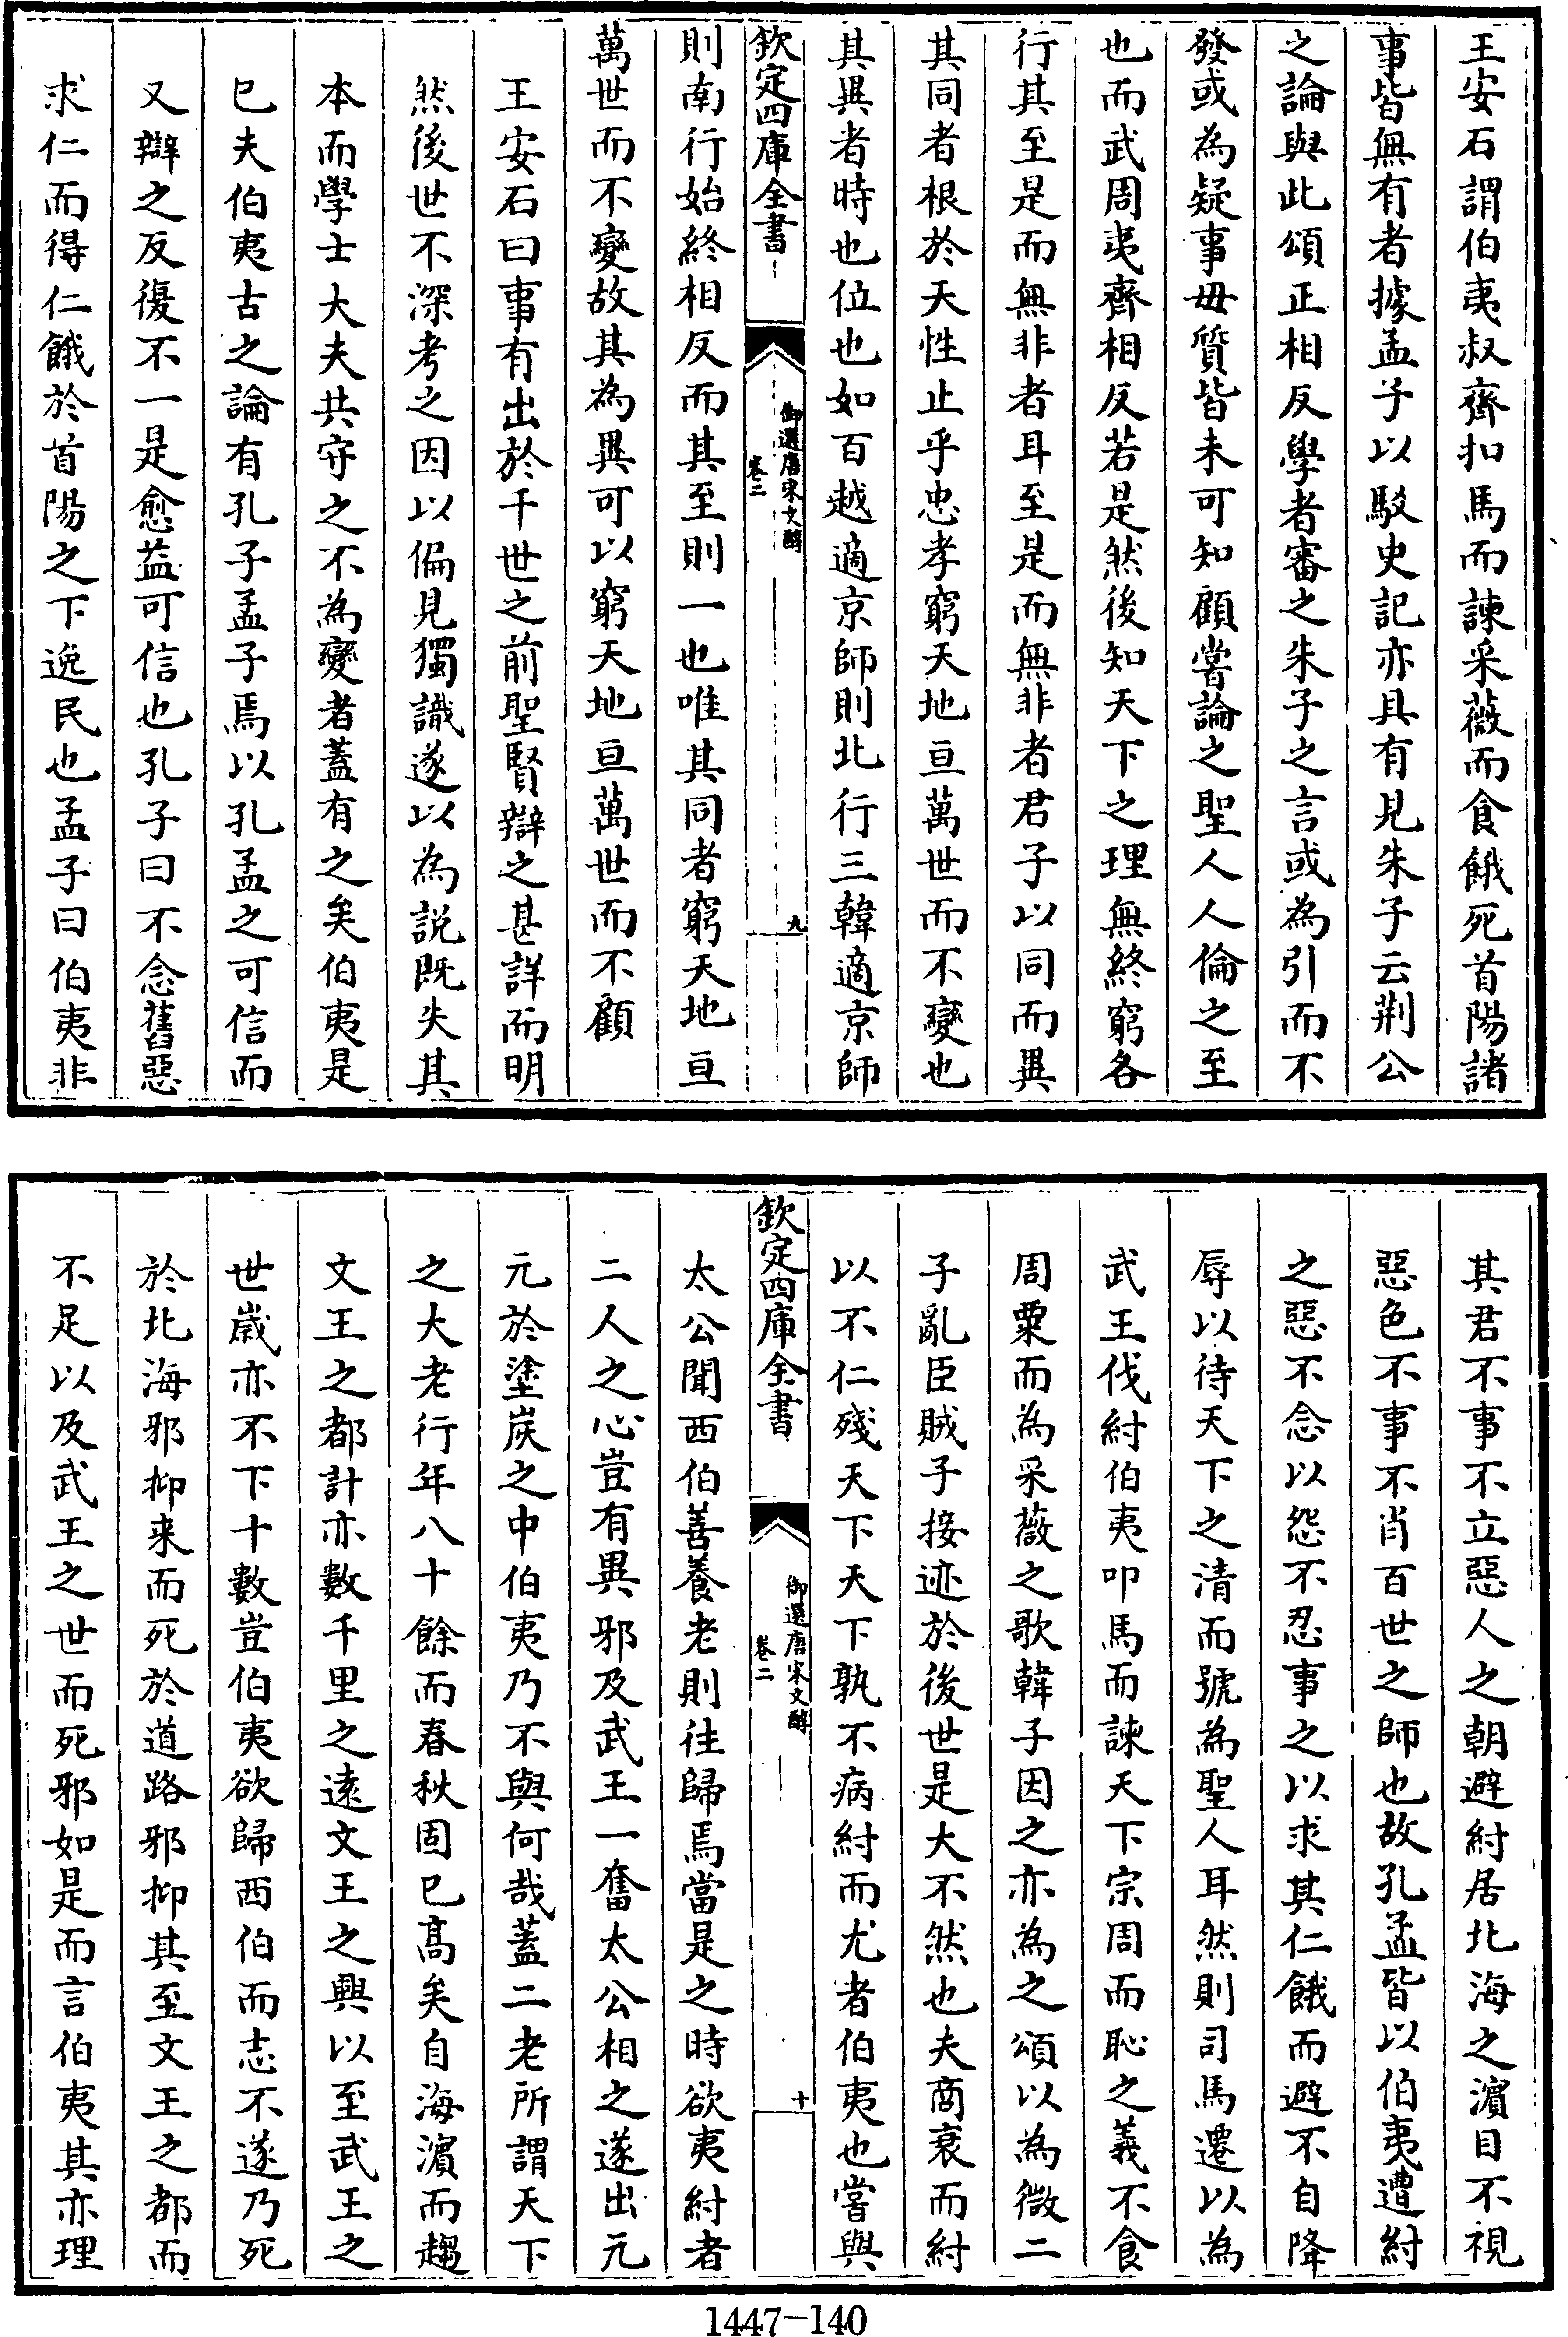 王安石謂伯夷叔齊扣馬而諫采薇而食餓死首陽諸
事皆無有者據孟子以駁史記亦具有見朱子云荆公
之論與此頌正相反學者審之朱子之言或為引而不
發或為疑事毋質皆未可知顧嘗論之聖人人倫之至
也而武周夷齊相反若是然後知天下之理無終窮各
行其至是而無非者耳至是而無非者君子以同而異
其同者根於天性止乎忠孝窮天地亘萬世而不變也
其異者時也位也如百越適京師則北行三韓適京師
欽定四庫全書
御選唐宋文醇
卷二
九
則南行始終相反而其至則一也唯其同者窮天地亘
萬世而不變故其為異可以窮天地亘萬世而不顧
王安石曰事有出於千世之前聖賢辯之甚詳而明
然後世不深考之因以偏見獨識遂以為説既失其
本而學士大夫共守之不為變者蓋有之矣伯夷是
已夫伯夷古之論有孔子孟子焉以孔孟之可信而
又辯之反復不一是愈益可信也孔子曰不念舊惡
求仁而得仁餓於首陽之下逸民也孟子曰伯夷非
其君不事不立惡人之朝避紂居北海之濵目不視
惡色不事不肖百世之師也故孔孟皆以伯夷遭紂
之惡不念以怨不忍事之以求其仁餓而避不自降
辱以待天下之清而號為聖人耳然則司馬遷以為
武王伐紂伯夷叩馬而諫天下宗周而恥之義不食
周粟而為采薇之歌韓子因之亦為之頌以為微二
子亂臣賊子接迹於後世是大不然也夫商衰而紂
以不仁殘天下天下孰不病紂而尤者伯夷也嘗與
欽定四庫全書
御選唐宋文醇
卷二
十
太公聞西伯善養老則往歸焉當是之時欲夷紂者
二人之心豈有異邪及武王一奮太公相之遂出元
元於塗炭之中伯夷乃不與何哉蓋二老所謂天下
之大老行年八十餘而春秋固已髙矣自海濵而趨
文王之都計亦數千里之逺文王之興以至武王之
世嵗亦不下十數豈伯夷欲歸西伯而志不遂乃死
於北海邪抑来而死於道路邪抑其至文王之都而
不足以及武王之世而死邪如是而言伯夷其亦理
1447-140